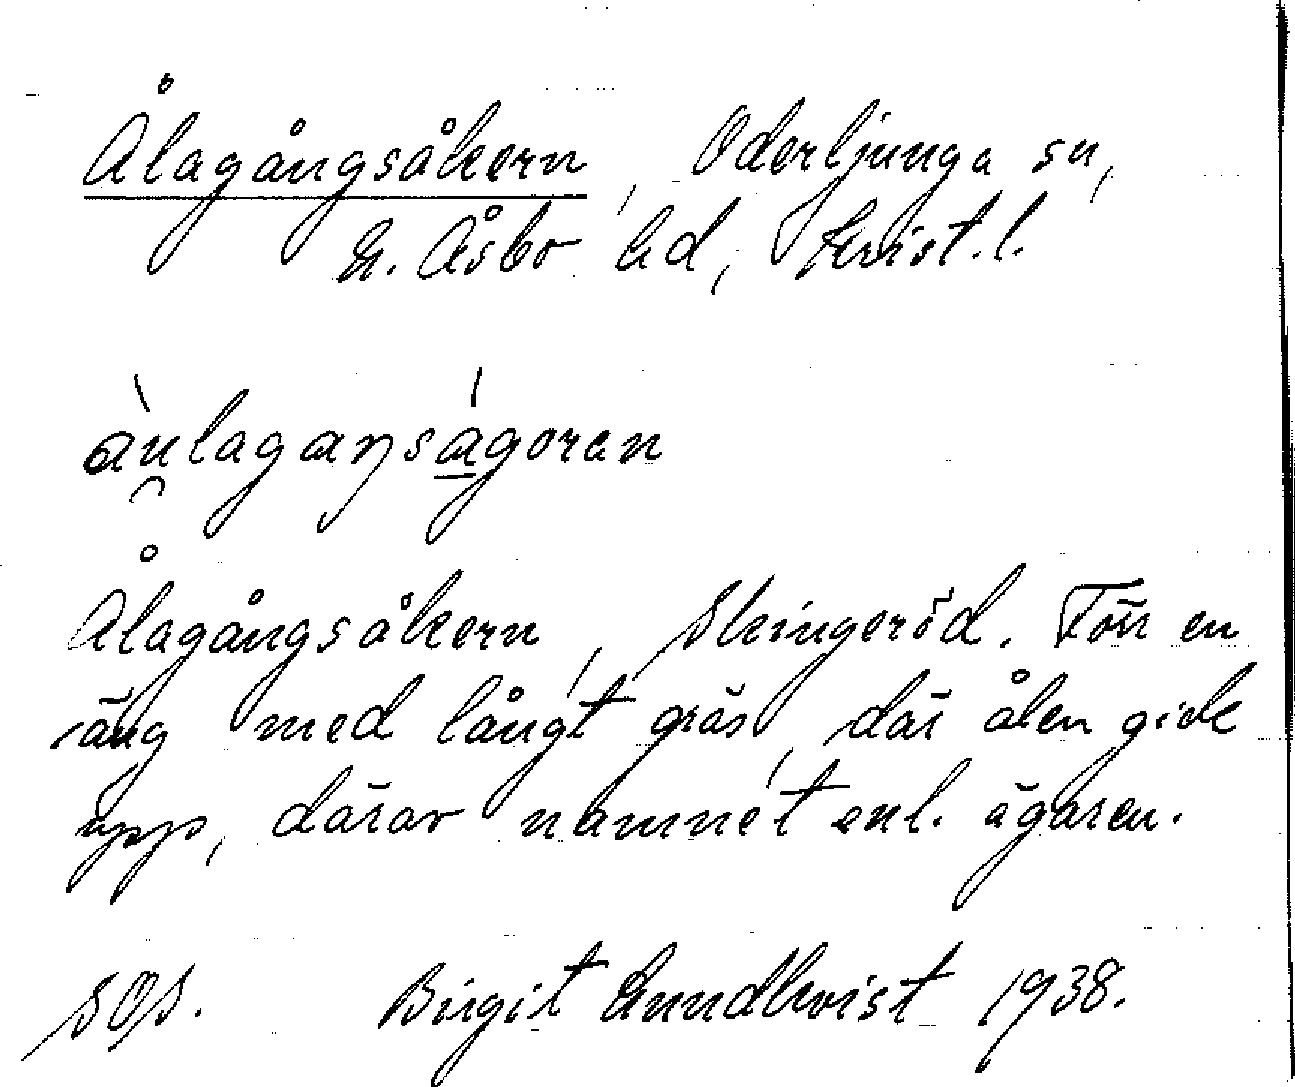 Ålagångsåkern, Oderljunga sn,
N. Åsbo hd, Krist. l.
àu̯lagaŋsá̲goren
Ålagångsåkern, Skingeröd. Förr en
äng med långt gräs, där ålen gick
upp, därav namnet enl. ägaren.
SOS. Birgit Lundkvist 1938.